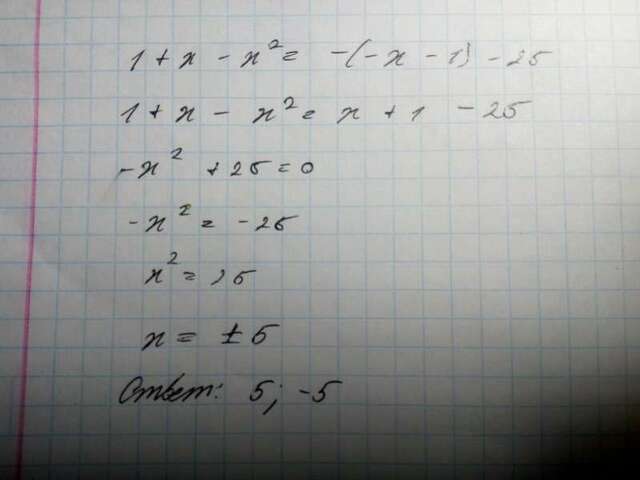 1 + x - x² = -(-x - 1) - 25
1 + x - x² = x + 1 - 25
-x² + 25 = 0
-x² = -25
x² = 25
x = ±5
Ответ: 5; -5